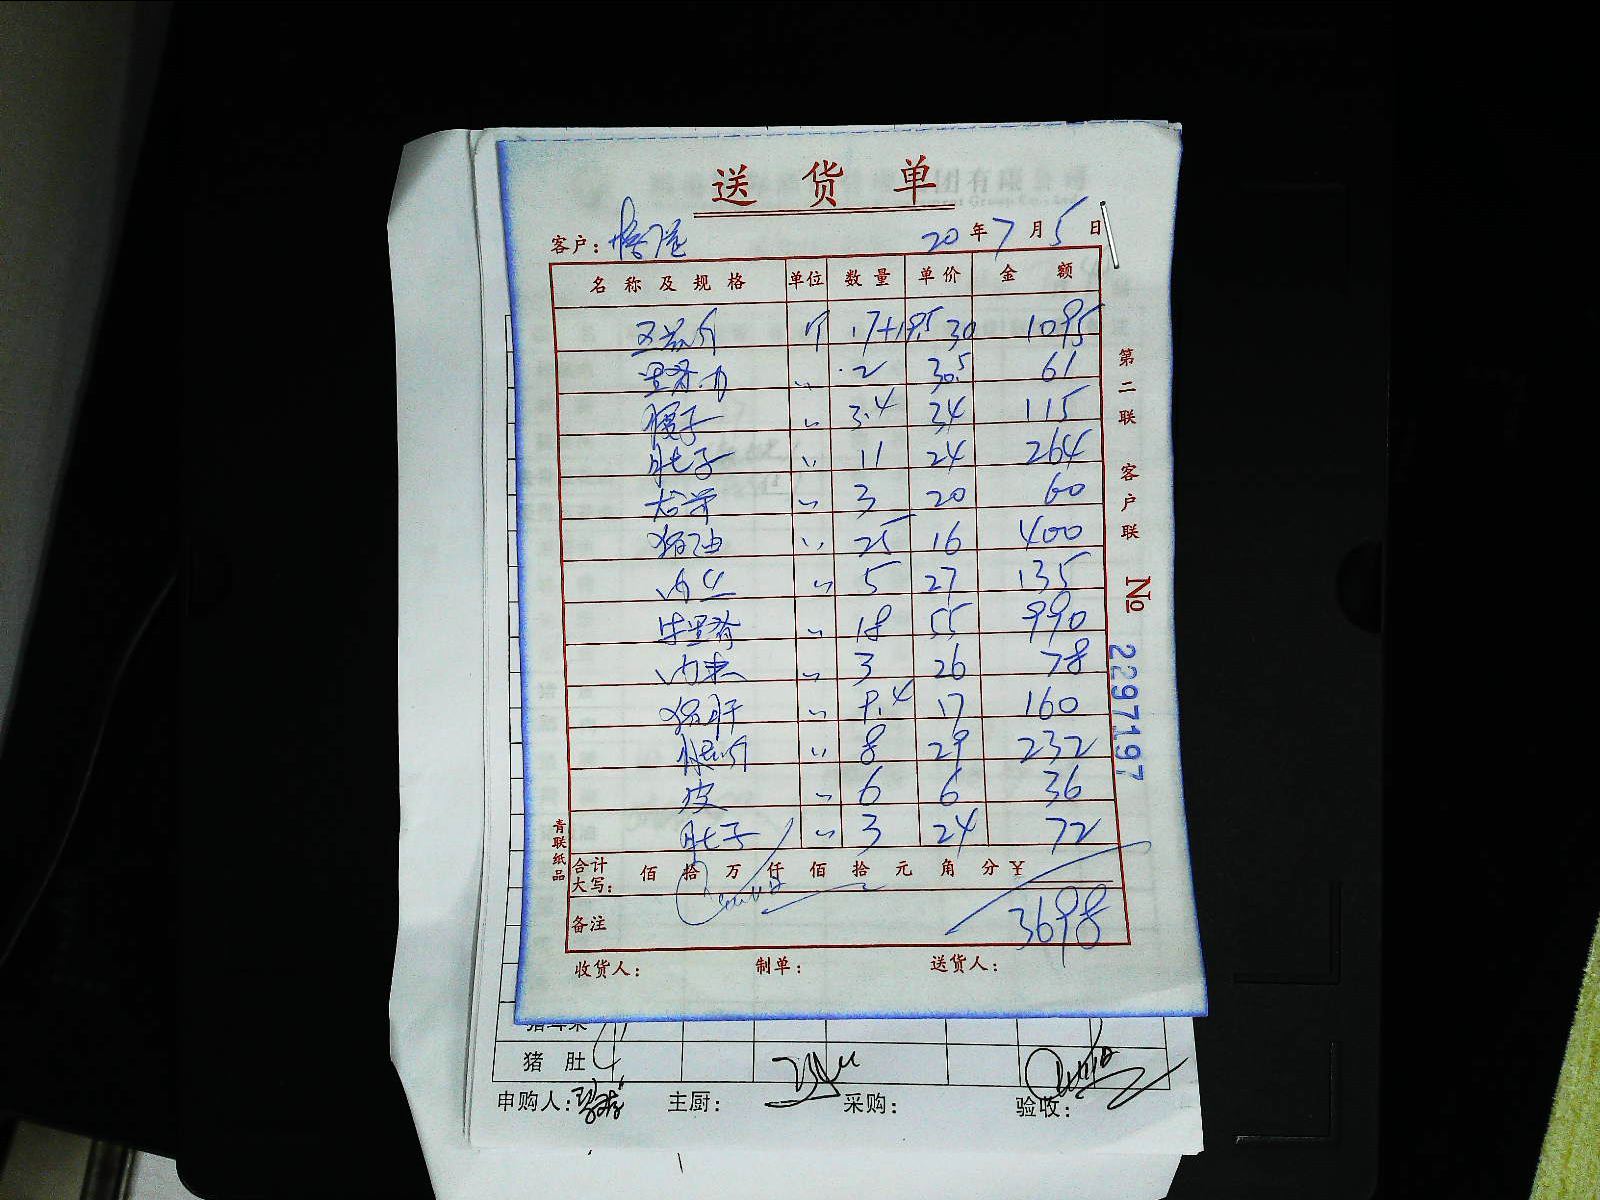 送货单
客户：
20年7月5日
名称及规格 单位 数量 单价 金额
17+19.5 30 1095
2 30.5 61
子 〃 3.4 34 115
肚子 〃 11 24 264
〃 3 20 60
猪油 〃 25 16 400
肉丝 〃 5 27 135
牛里脊 〃 18 55 990
〃 3 26 78
猪肝 〃 9.4 17 160
〃 8 29 232
皮 〃 6 6 36
肚子 〃 3 24 72
合计大写： 佰 拾 万 仟 佰 拾 元 角 分 ¥
备注 3698
收货人： 制单： 送货人：
第二联 客户联
№ 2297197
青联纸品
猪肚
申购人： 主厨： 采购： 验收：